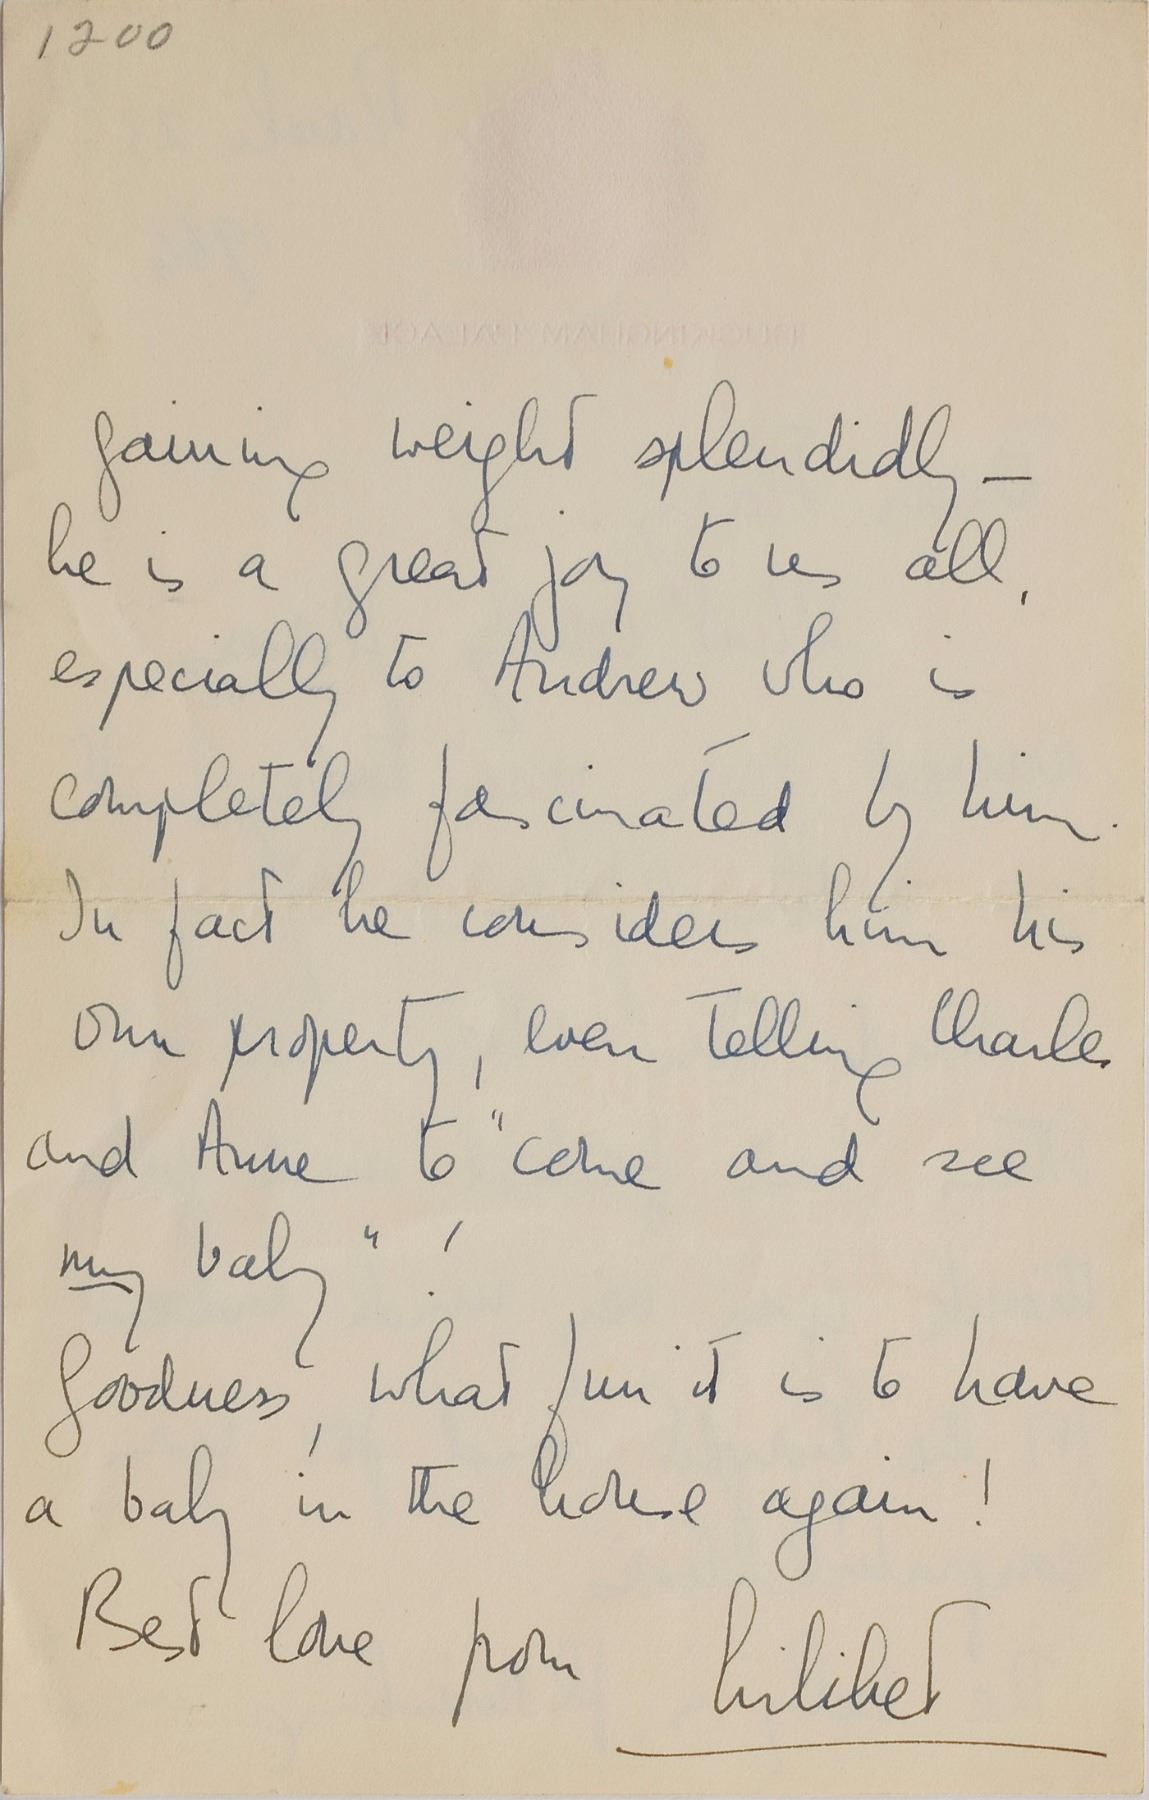 1200
BUCKINGHAM PALACE
gaining weight splendidly —
he is a great joy to us all,
especially to Andrew who is
completely fascinated by him.
In fact he considers him his
own property, even telling Charles
and Anne to "come and see
my baby" !
Goodness, what fun it is to have
a baby in the house again !
Best love from Lilibet